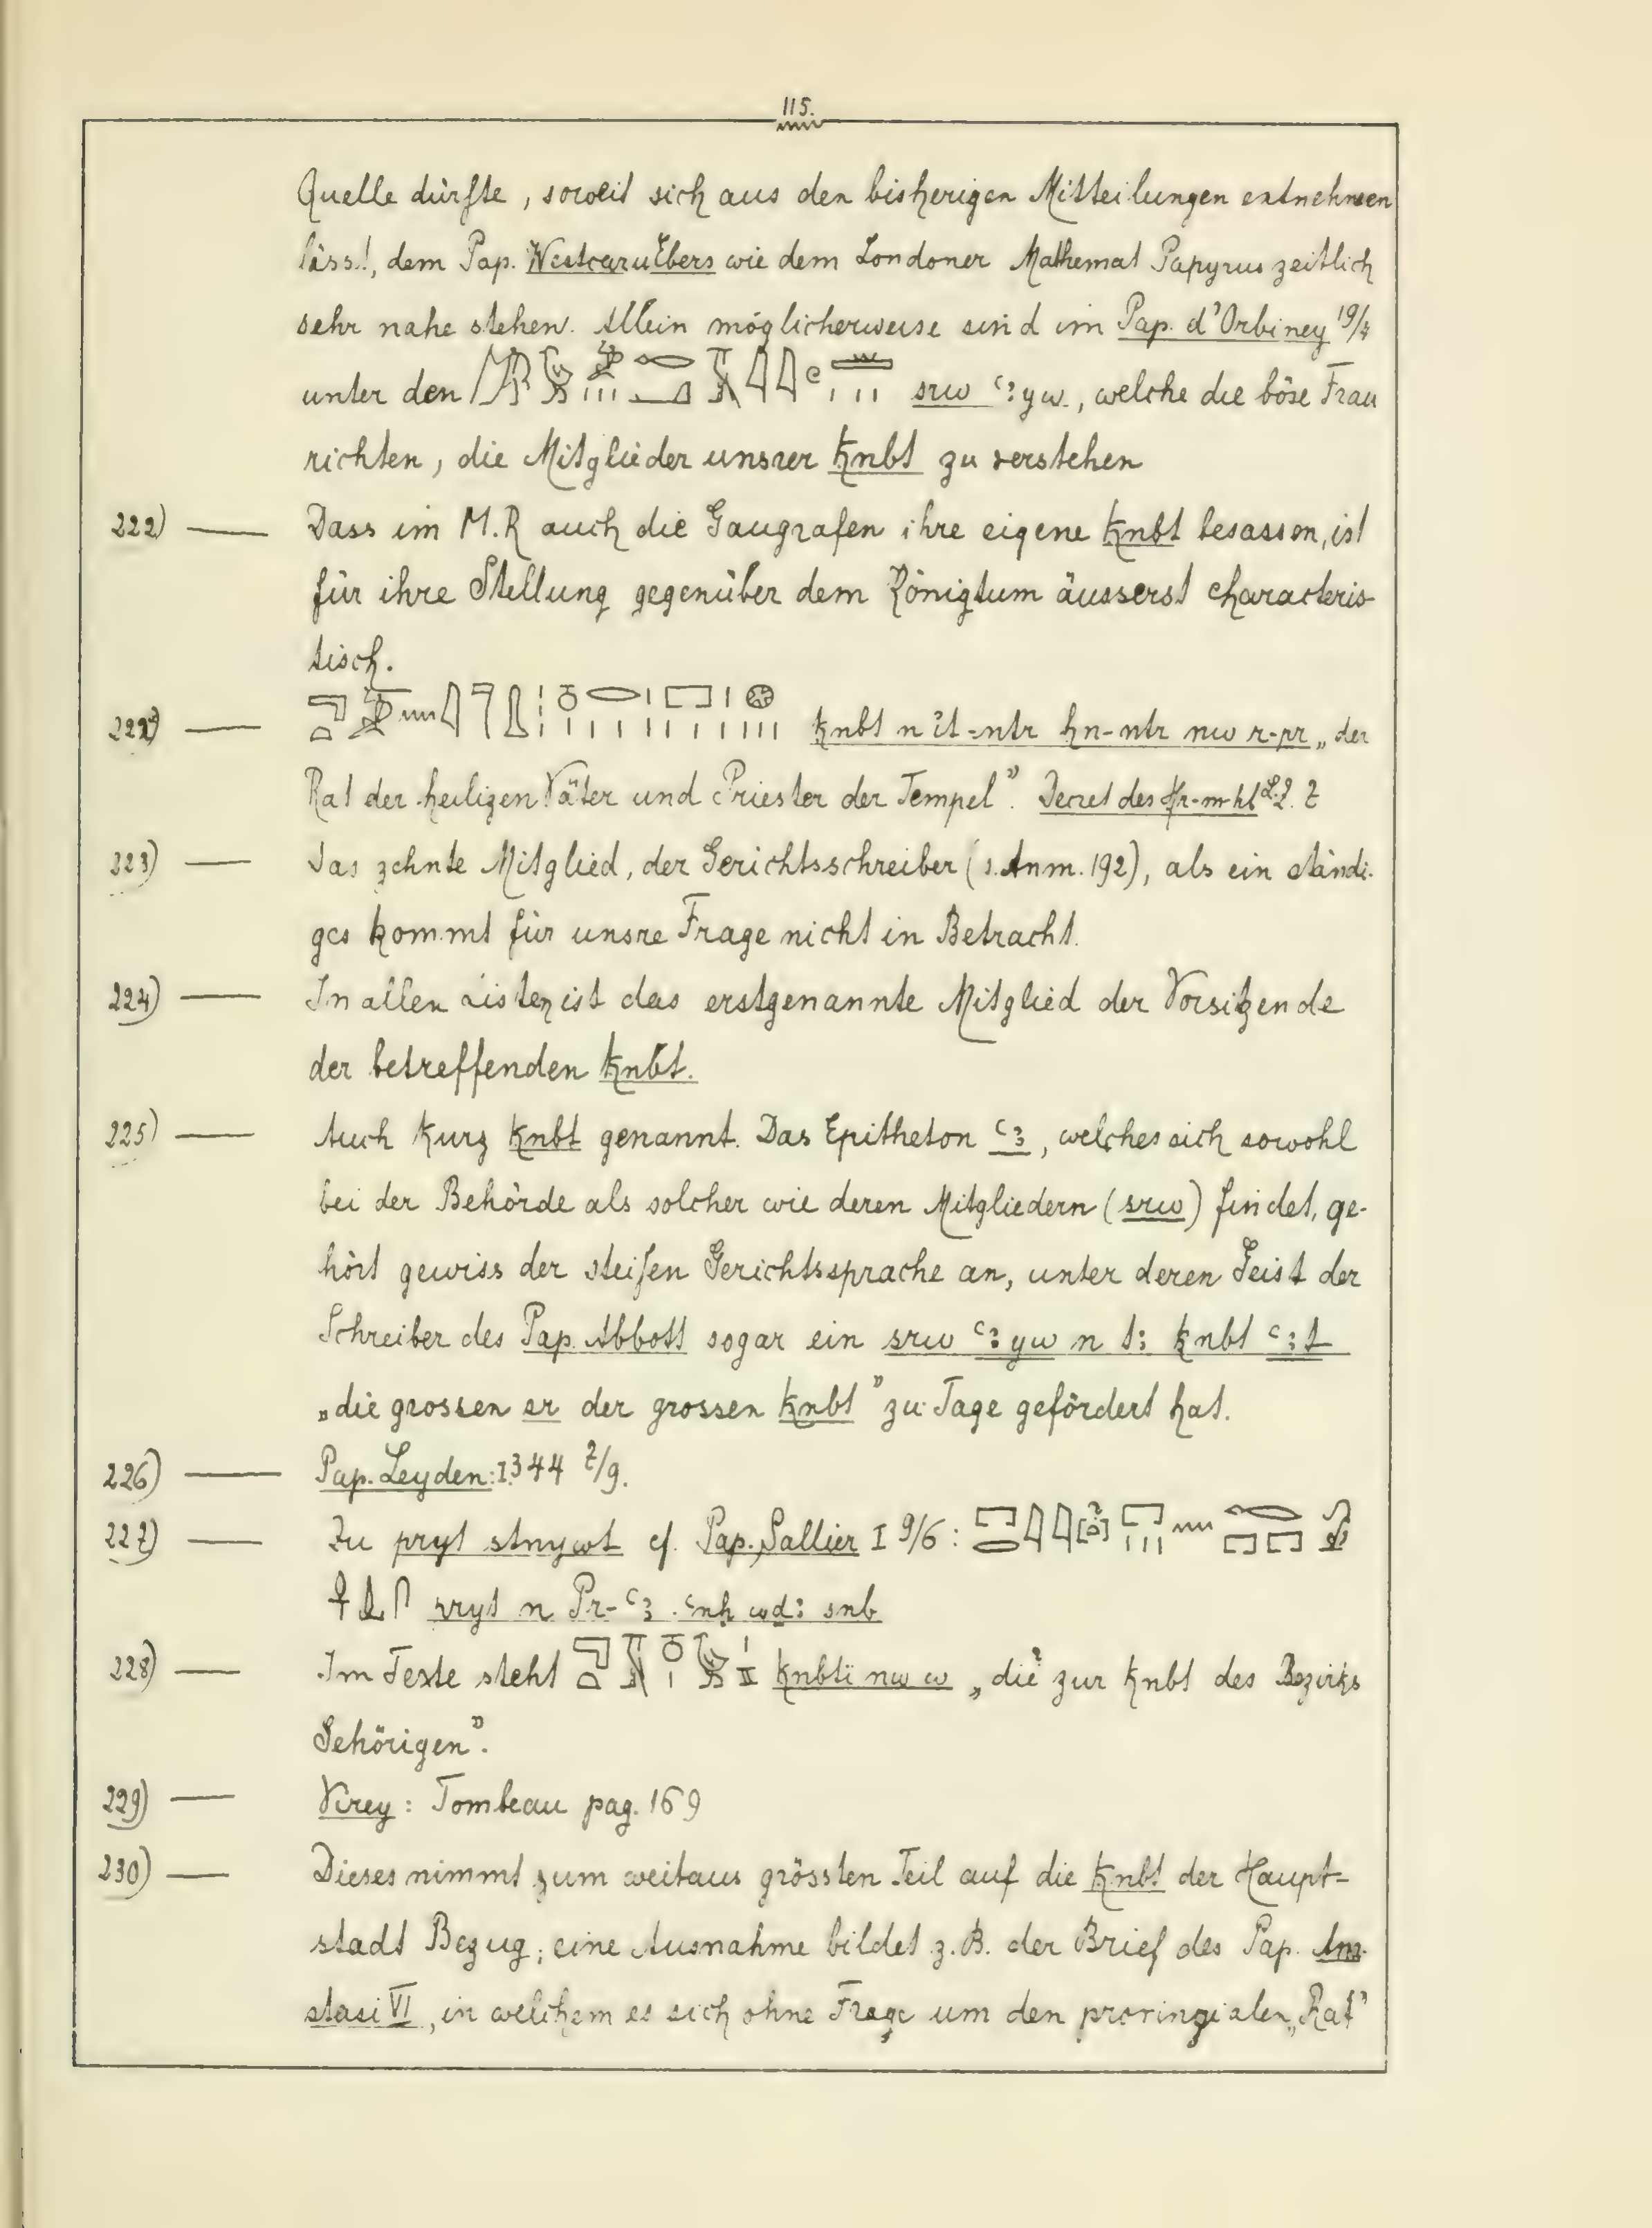 115.
Quelle dürfte, soweit sich aus den bisherigen Mitteilungen entnehmen
lässt, dem Pap. Westcar u Ebers wie dem Londoner Mathemat Papyrus zeitlich
sehr nahe stehen. Allein möglicherweise sind im Pap. d'Orbiney 19/4
unter den srw ꜥꜣyw, welche die böse Frau
richten, die Mitglieder unsrer ḳnbt zu verstehen
222) — Dass im M.R auch die Gaugrafen ihre eigene ḳnbt besassen, ist
für ihre Stellung gegenüber dem Königtum äusserst characteris-
tisch.
222ᵃ) — ḳnbt n ỉt-ntr ḥn-ntr nw r-pr „der
Rat der heiligen Väter und Priester der Tempel”. Decret des Ḥr-m-ḥb
223) — Das zehnte Mitglied, der Gerichtsschreiber (s. Anm. 192), als ein ständi-
ges kommt für unsre Frage nicht in Betracht.
224) — In allen Listen ist das erstgenannte Mitglied der Vorsitzende
der betreffenden ḳnbt.
225) — Auch kurz ḳnbt genannt. Das Epitheton ꜥꜣ, welches sich sowohl
bei der Behörde als solcher wie deren Mitgliedern (srw) findet, ge-
hört gewiss der steifen Gerichtssprache an, unter deren Geist der
Schreiber des Pap. Abbott sogar ein srw ꜥꜣyw n tꜣ ḳnbt ꜥꜣt
„die grossen sr der grossen ḳnbt” zu Tage gefördert hat.
226) — Pap. Leyden: I 344 2/9.
227) — Zu pryt stnywt cf. Pap. Sallier I 9/6:
pryt n Pr-ꜥꜣ ꜥnḫ wdꜣ snb
228) — Im Texte steht ḳnbtï nw w „die zur ḳnbt des Bezirks
Gehörigen”.
229) — Virey: Tombeau pag. 169
230) — Dieses nimmt zum weitaus grössten Teil auf die ḳnbt der Haupt-
stadt Bezug; eine Ausnahme bildet z. B. der Brief des Pap. Ana-
stasi VI, in welchem es sich ohne Frage um den provinzialen „Rat”